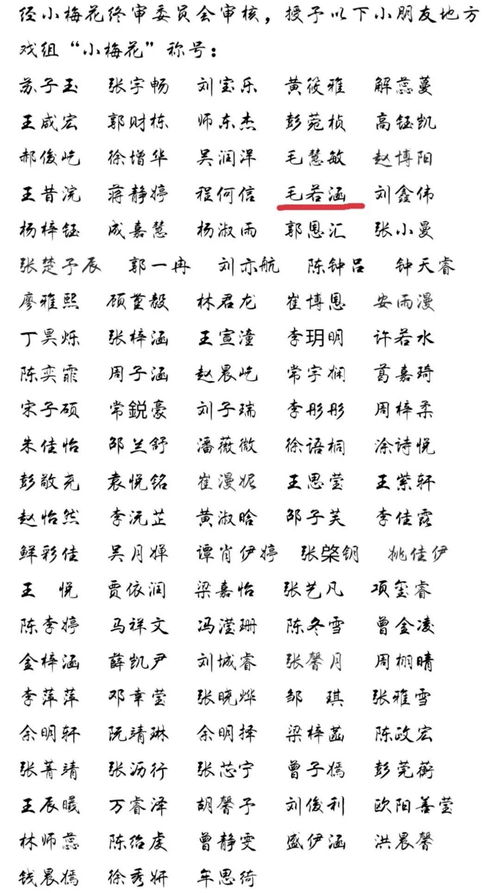 经小梅花终审委员会审核，授予以下小朋友地方
戏组“小梅花”称号：
苏子玉 张宇畅 刘宝乐 黄筱雅 解蕊蔓
王成宏 郭财栋 师东杰 彭菀桢 高钰凯
郝俊屹 徐增华 吴润洋 毛慧敏 赵博阳
王昔浣 蒋静婷 程何信 毛若涵 刘鑫伟
杨梓钰 成嘉慧 杨淑雨 郭恩汇 张小曼
张楚予辰 郭一冉 刘亦航 陈钟吕 钟天睿
廖雅熙 顾堇毅 林君龙 崔博恩 安雨漫
丁昊烁 张梓涵 王宣潼 李玥明 许若水
陈奕霏 周子涵 赵晨屹 常宇娴 葛嘉琦
宋子硕 常鋭豪 刘子瑞 李彤彤 周梓柔
朱佳怡 邵兰舒 潘薇微 徐语桐 涂诗悦
彭敬尧 袁悦铭 崔漫妮 王思莹 王紫轩
赵怡然 李沅芷 黄淑晗 邵子芙 李佳霓
鲜彩佳 吴月婵 谭肖伊婷 张棨钥 姚佳伊
王悦 贾依润 梁嘉怡 张艺凡 项玺睿
陈李婷 马祥文 冯滢珊 陈冬雪 曾金凌
金梓涵 薛凯尹 刘城睿 张馨月 周栩晴
李萍萍 邓幸莹 张晓烨 邹琪 张雅雪
余明轩 阮靖琳 余明择 梁梓菡 陈政宏
张菁靖 张沥行 张芯宇 曾子嫣 彭莞蘅
王辰曦 万睿泽 胡馨予 刘俊利 欧阳善莹
林师蕊 陈绐虔 曾静雯 盛伊涵 洪晨馨
钱晨嫣 徐秀妍 车思绮